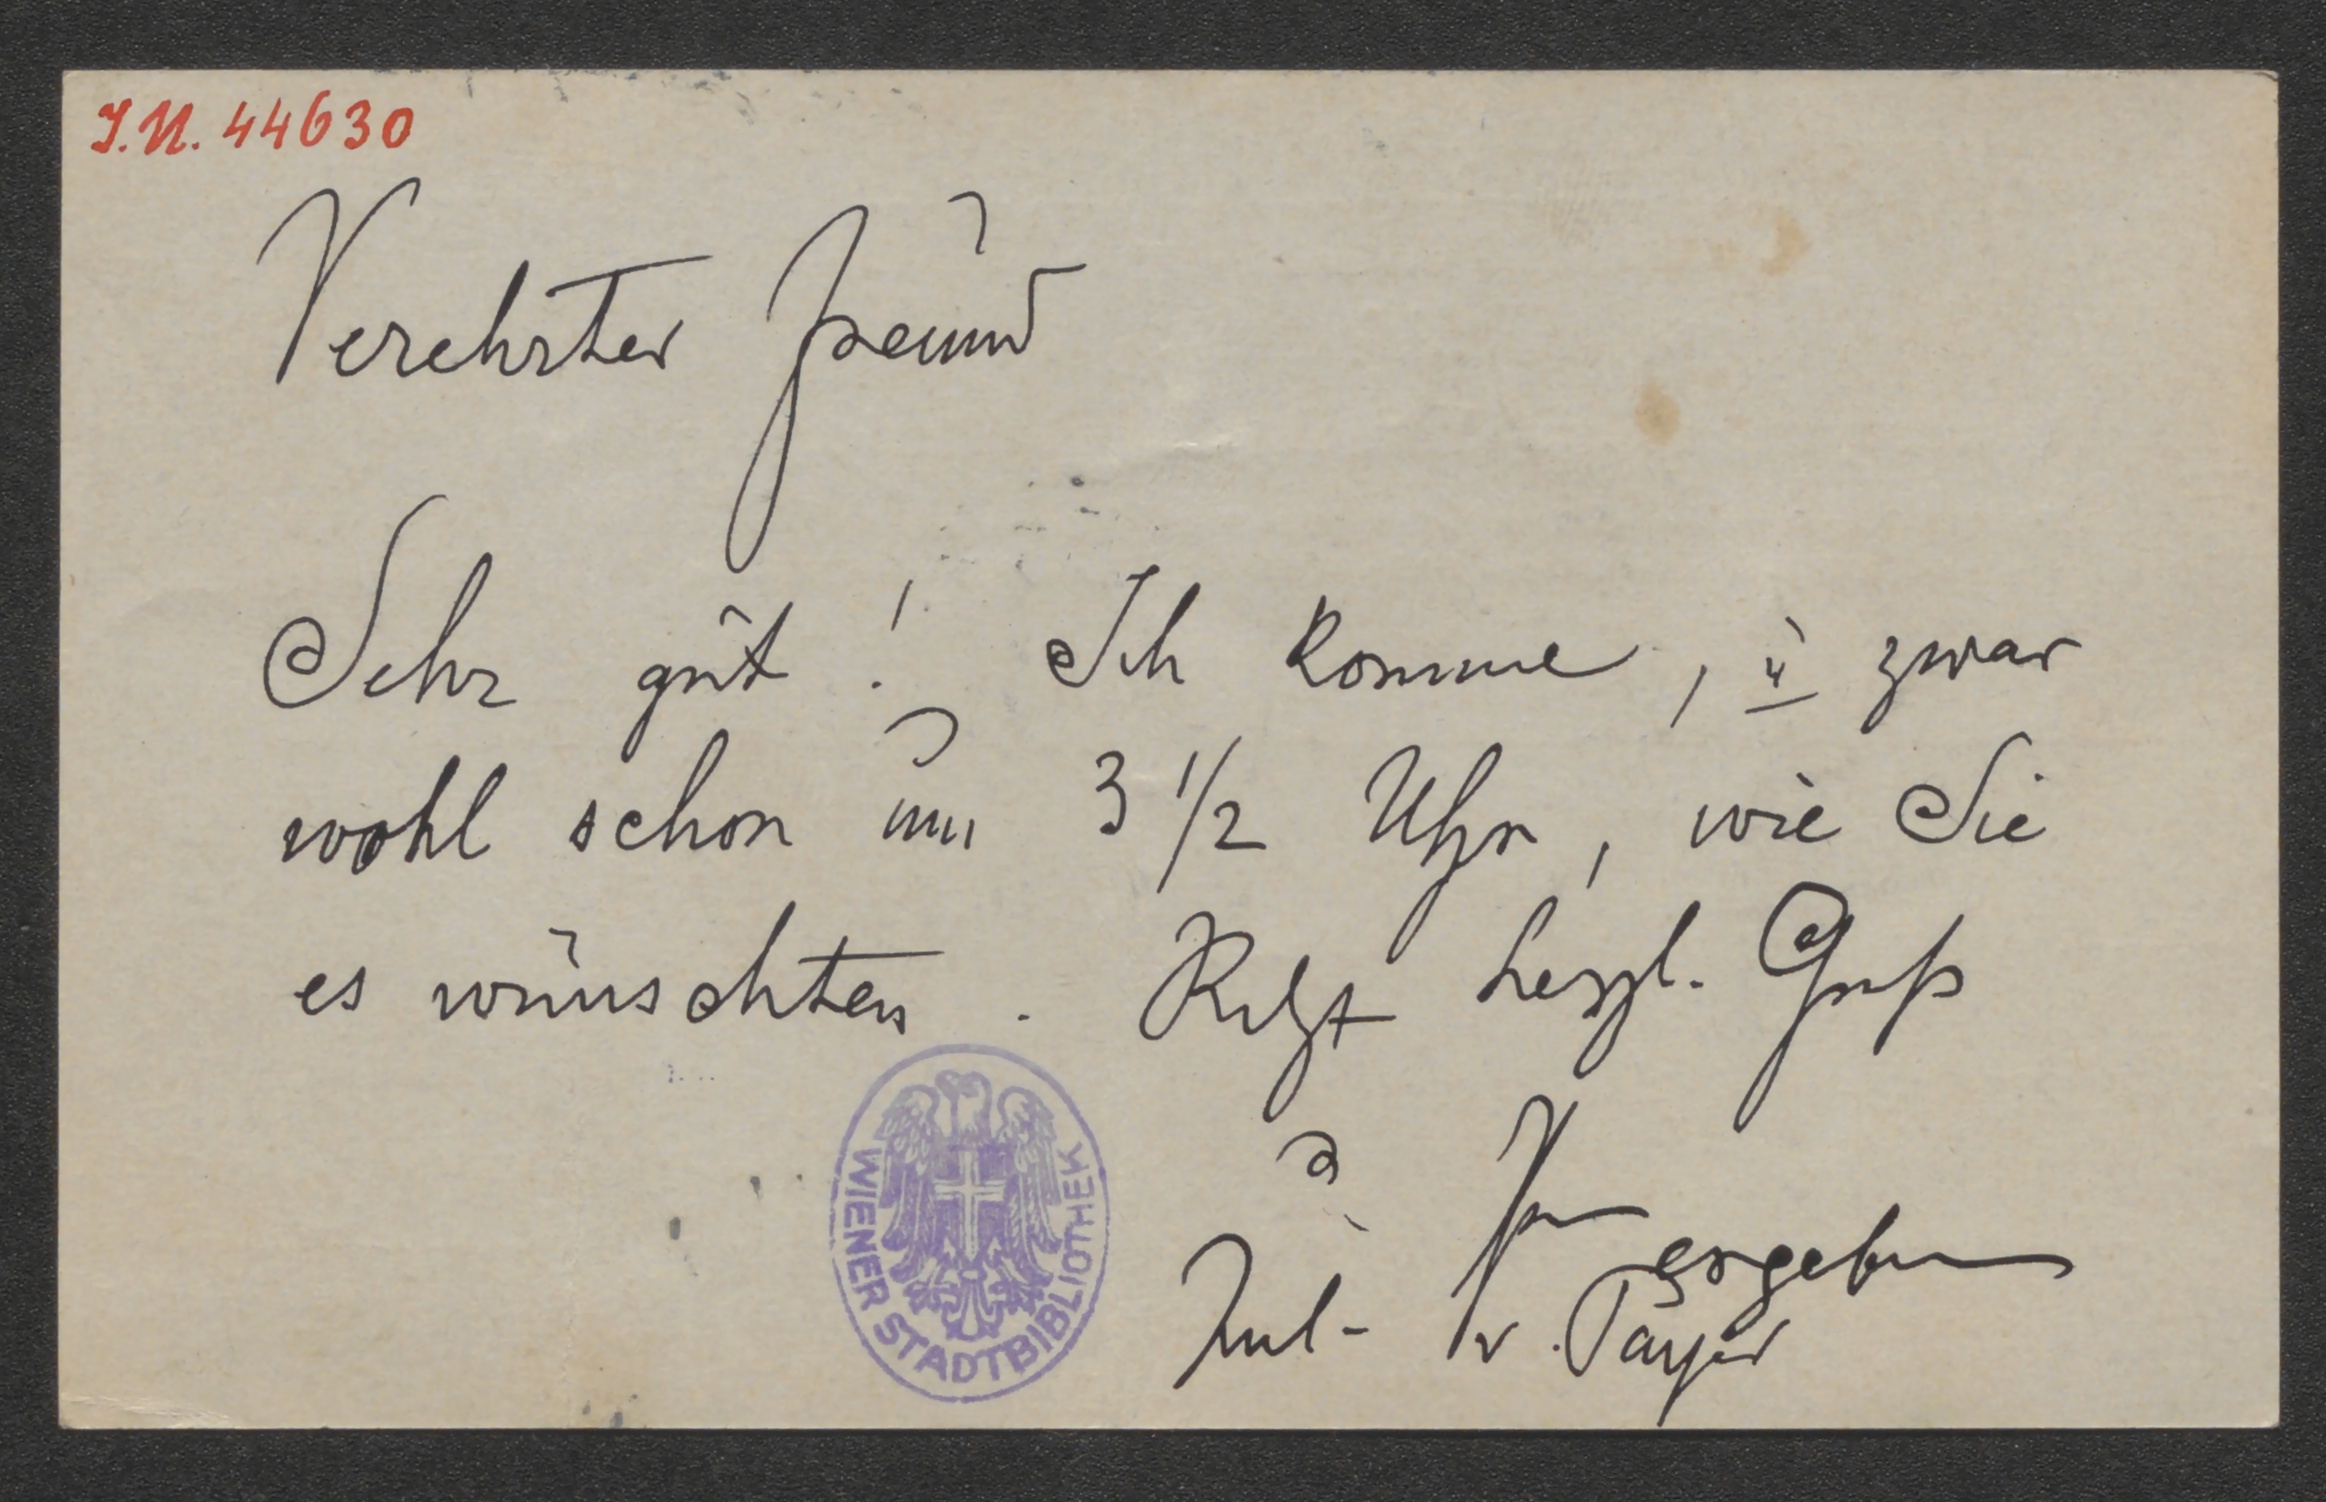 I.N. 44630
Verehrter Freund
Sehr gut! Ich komme, u zwar
wohl schon um 3 1/2 Uhr, wie Sie
es wünschten. herzl. Gruß
Ihr
ergeben
Jul- v. Payer
WIENER STADTBIBLIOTHEK